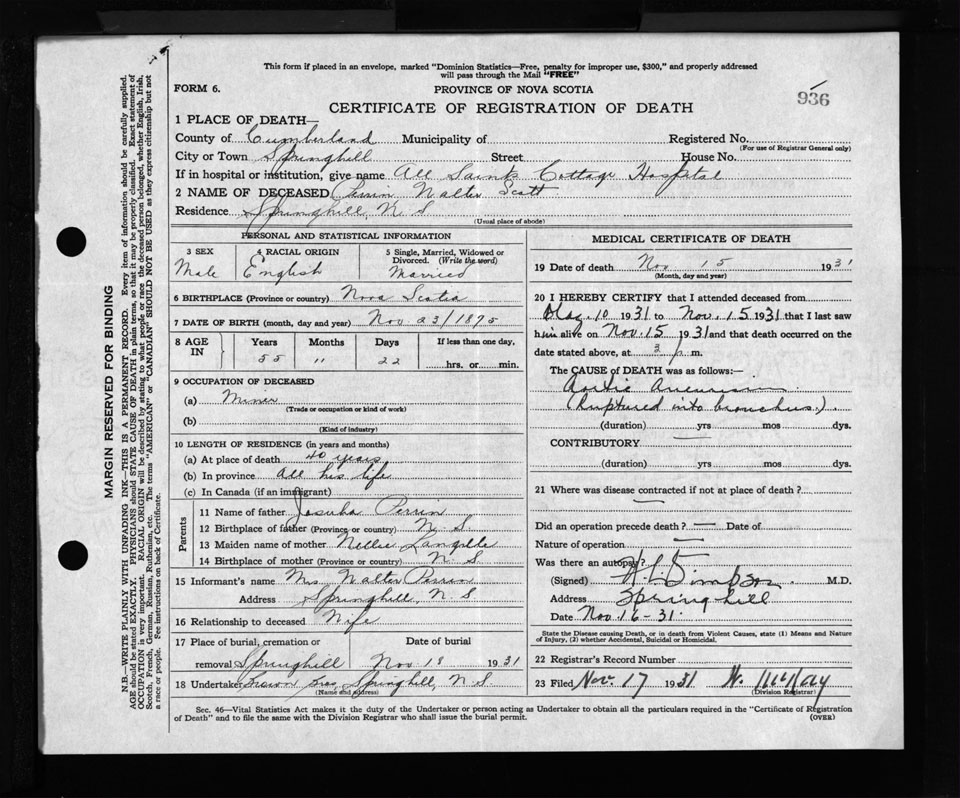 This form if placed in an envelope, marked "Dominion Statistics—Free, penalty for improper use, $300," and properly addressed
will pass through the Mail "FREE"
FORM 6.
PROVINCE OF NOVA SCOTIA
936
CERTIFICATE OF REGISTRATION OF DEATH
1 PLACE OF DEATH—
County of Cumberland Municipality of Registered No.
(For use of Registrar General only)
City or Town Springhill Street House No.
If in hospital or institution, give name All Saints Cottage Hospital
2 NAME OF DECEASED Perrin Walter Scott
Residence Springhill, N.S
(Usual place of abode)
PERSONAL AND STATISTICAL INFORMATION
3 SEX 4 RACIAL ORIGIN 5 Single, Married, Widowed or
Divorced. (Write the word)
Male English Married
6 BIRTHPLACE (Province or country) Nova Scotia
7 DATE OF BIRTH (month, day and year) Nov 23/1875
8 AGE IN Years Months Days If less than one day,
55 11 22 hrs. or min.
9 OCCUPATION OF DECEASED
(a) Miner
(Trade or occupation or kind of work)
(b)
(Kind of industry)
10 LENGTH OF RESIDENCE (in years and months)
(a) At place of death 40 years
(b) In province all his life
(c) In Canada (if an immigrant)
Parents
11 Name of father Josuha Perrin
12 Birthplace of father (Province or country) N.S
13 Maiden name of mother Nellie Langille
14 Birthplace of mother (Province or country) N.S
15 Informant's name Mrs Walter Perrin
Address Springhill, N.S
16 Relationship to deceased Wife
17 Place of burial, cremation or Date of burial
removal Springhill Nov 18 1931
18 Undertaker Brown Bros Springhill, N.S.
(Name and address)
MEDICAL CERTIFICATE OF DEATH
19 Date of death Nov 15 1931
(Month, day and year)
20 I HEREBY CERTIFY that I attended deceased from
10 1931 to Nov. 15 1931 that I last saw
him alive on Nov. 15 1931 and that death occurred on the
date stated above, at 3 p. m.
The CAUSE OF DEATH was as follows:—
Aortic Aneurism
(Ruptured into bronchus.)
(duration) yrs mos dys.
CONTRIBUTORY —
(duration) yrs mos dys.
21 Where was disease contracted if not at place of death?
—
Did an operation precede death? — Date of
Nature of operation —
Was there an autopsy?
(Signed) H. L. Simpson M.D.
Address Springhill
Date Nov. 16-31.
State the Disease causing Death, or in death from Violent Causes, state (1) Means and Nature
of Injury, (2) whether Accidental, Suicidal or Homicidal.
22 Registrar's Record Number
23 Filed Nov. 17 1931 W. McKay
(Division Registrar)
Sec. 46—Vital Statistics Act makes it the duty of the Undertaker or person acting as Undertaker to obtain all the particulars required in the "Certificate of Registration
of Death" and to file the same with the Division Registrar who shall issue the burial permit. (OVER)
MARGIN RESERVED FOR BINDING
N.B.—WRITE PLAINLY WITH UNFADING INK—THIS IS A PERMANENT RECORD. Every item of information should be carefully supplied.
AGE should be stated EXACTLY. PHYSICIANS should STATE CAUSE OF DEATH in plain terms, so that it may be properly classified. Exact statement of
OCCUPATION is very important. RACIAL ORIGIN will be described by stating to what people or race the deceased person belonged, whether English, Irish,
Scotch, French, German, Russian, Ruthenian, etc. The terms "AMERICAN" or "CANADIAN" SHOULD NOT BE USED as they express citizenship but not
a race or people. See instructions on back of Certificate.